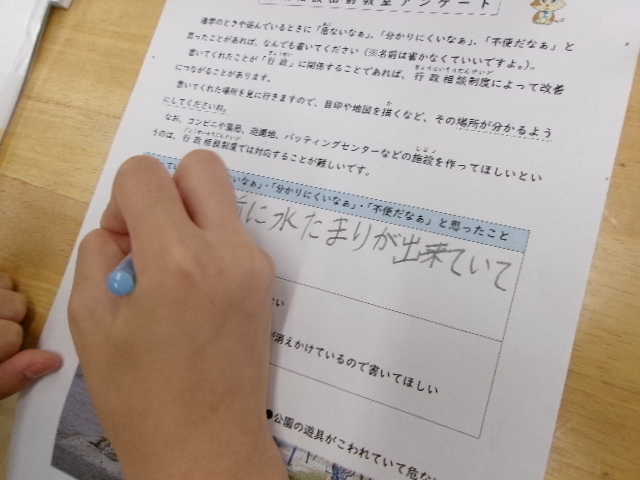 出前教室アンケート
通学のときや遊んでいるときに「危ないなぁ」、「分かりにくいなぁ」、「不便だなぁ」と
思ったことがあれば、なんでも書いてください（※名前は書かなくていいですよ。）。
書いてくれたことが「行政」に関係することであれば、行政相談制度によって改善
につながることがあります。
書いてくれた場所を見に行きますので、目印や地図を描くなど、その場所が分かるよう
にしてくださいね。
なお、コンビニや薬局、遊園地、バッティングセンターなどの施設を作ってほしいとい
うのは、行政相談制度では対応することが難しいです。
いなぁ」・「分かりにくいなぁ」・「不便だなぁ」と思ったこと
に水たまりが出来ていて
い
が消えかけているので書いてほしい
●公園の遊具がこわれていて危な